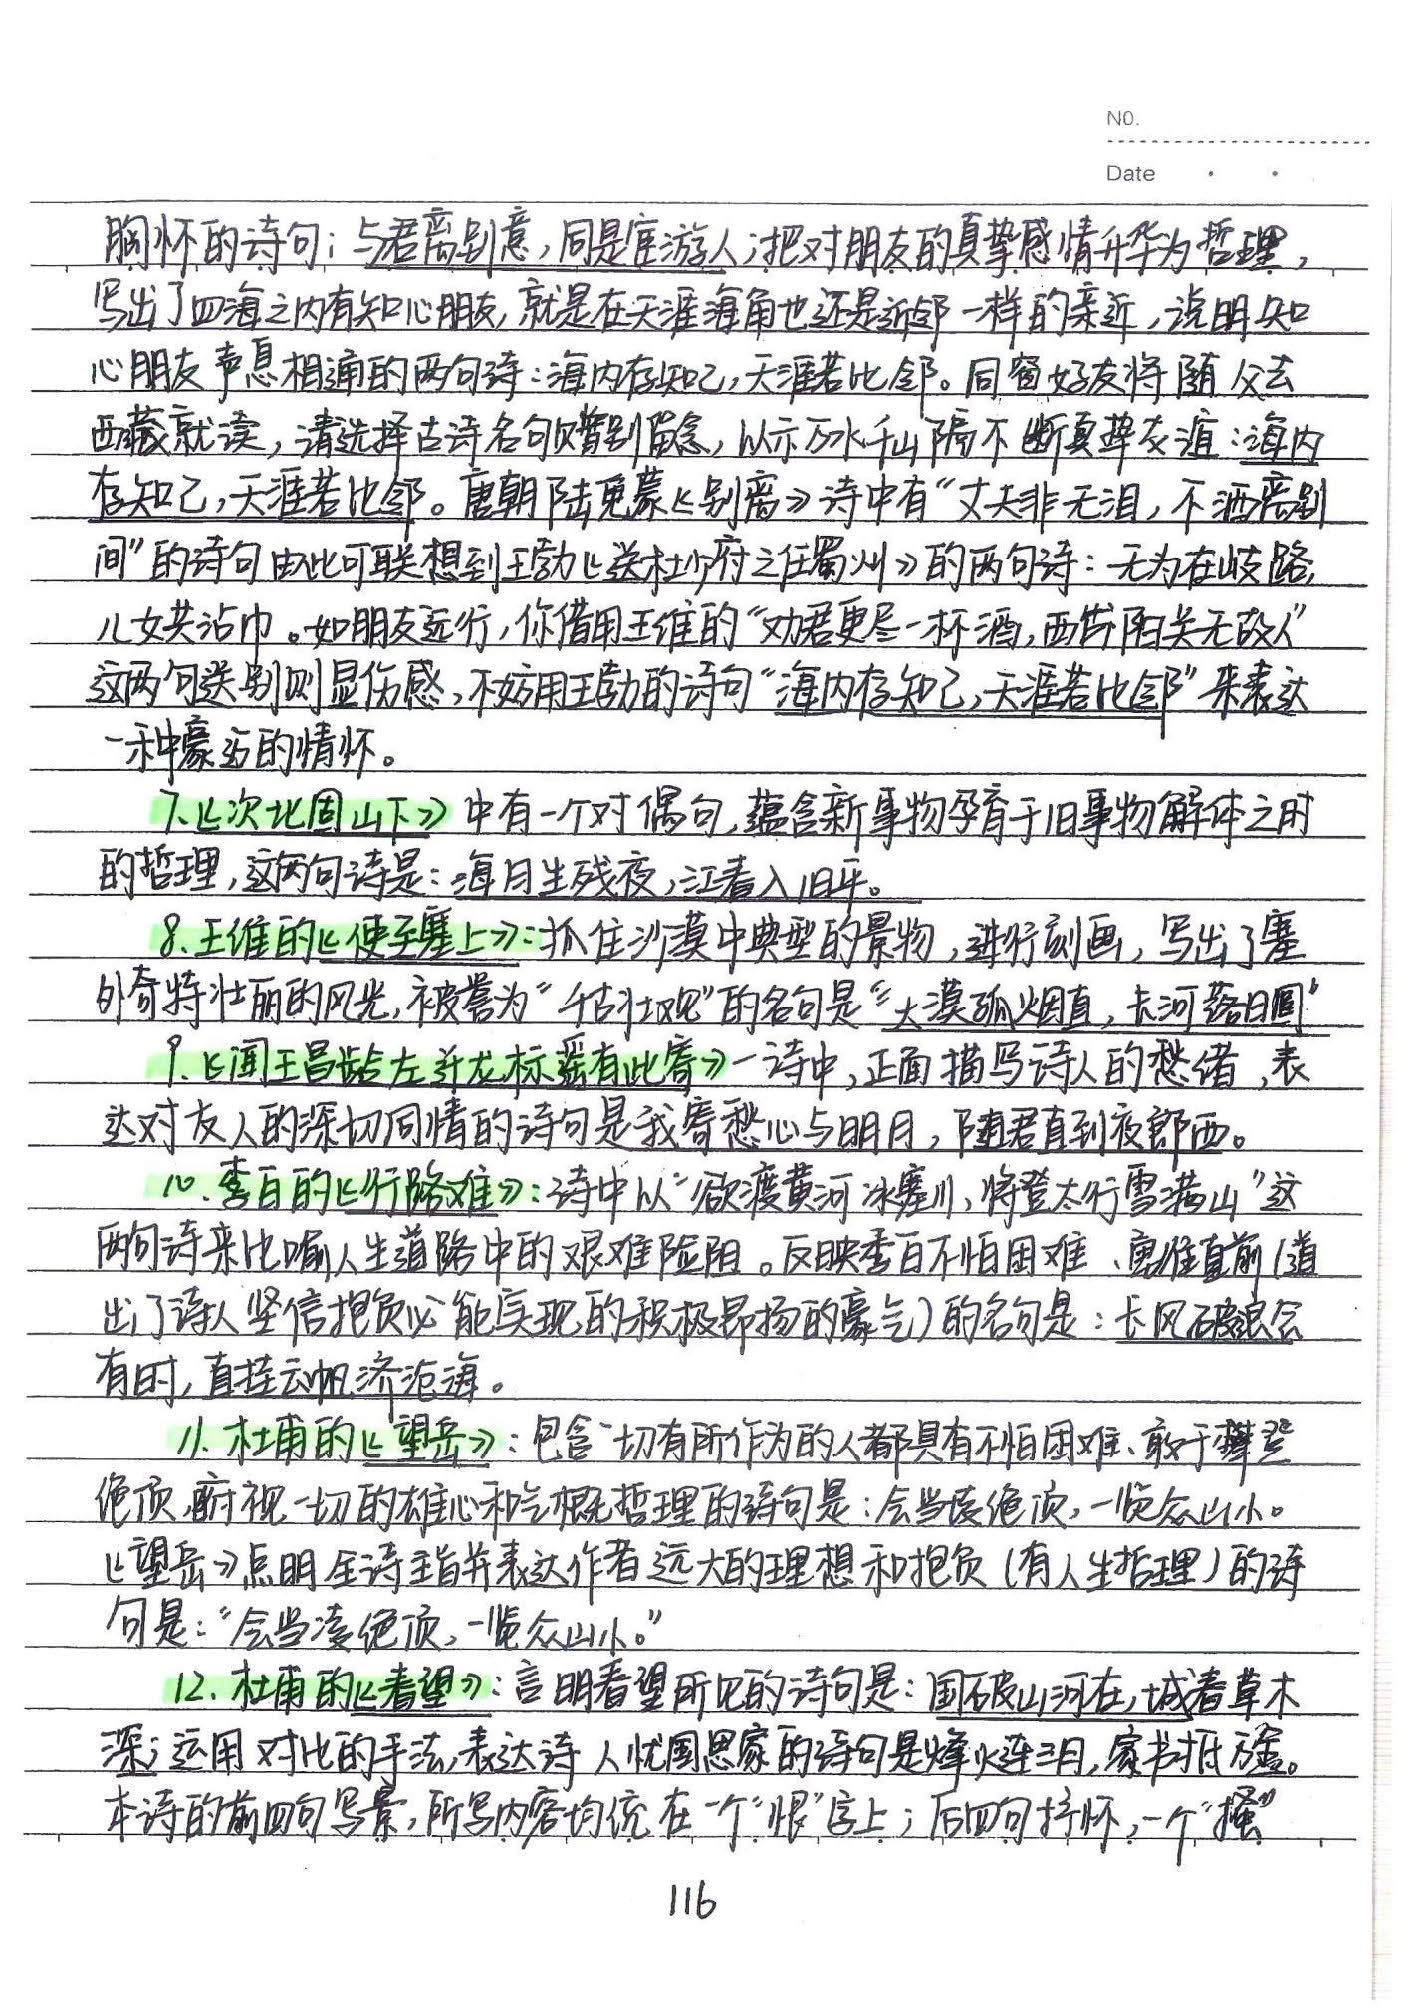 NO.
Date
胸怀的诗句；与君离别意，同是宦游人；把对朋友的真挚感情升华为哲理，
写出了四海之内有知心朋友，就是在天涯海角也还是近邻一样的亲近，说明知
心朋友声息相通的两句诗：海内存知己，天涯若比邻。同窗好友将随父去
西藏就读，请选择古诗名句赠别留念，以示万水千山隔不断真挚友谊：海内
存知己，天涯若比邻。唐朝陆龟蒙《别离》诗中有“丈夫非无泪，不洒离别
间”的诗句由此可联想到王勃《送杜少府之任蜀州》的两句诗：无为在歧路，
儿女共沾巾。如朋友远行，你借用王维的“劝君更尽一杯酒，西出阳关无故人”
这两句送别则显伤感，不妨用王勃的诗句“海内存知己，天涯若比邻”来表达
一种豪迈的情怀。
7.《次北固山下》中有一个对偶句，蕴含新事物孕育于旧事物解体之时
的哲理，这两句诗是：海月生残夜，江春入旧年。
8.王维的《使至塞上》：抓住沙漠中典型的景物，进行刻画，写出了塞
外奇特壮丽的风光，被誉为“千古壮观”的名句是“大漠孤烟直，长河落日圆”
9.《闻王昌龄左迁龙标遥有此寄》一诗中，正面描写诗人的愁绪，表
达对友人的深切同情的诗句是我寄愁心与明月，随君直到夜郎西。
10.李白的《行路难》：诗中以“欲渡黄河冰塞川，将登太行雪满山”这
两句诗来比喻人生道路中的艰难险阻。反映李白不怕困难、勇往直前（道
出了诗人坚信抱负必能实现的积极昂扬的豪气）的名句是：长风破浪会
有时，直挂云帆济沧海。
11.杜甫的《望岳》：包含一切有所作为的人都具有不怕困难、敢于攀登
绝顶，俯视一切的雄心和气概哲理的诗句是：会当凌绝顶，一览众山小。
《望岳》点明全诗主旨并表达作者远大的理想和抱负（有人生哲理）的诗
句是：“会当凌绝顶，一览众山小。”
12.杜甫的《春望》：言明春望所见的诗句是：国破山河在，城春草木
深；运用对比的手法，表达诗人忧国思家的诗句是烽火连三月，家书抵万金。
本诗的前四句写景，所写内容均统在一个“恨”字上；后四句抒怀，一个“搔”
116